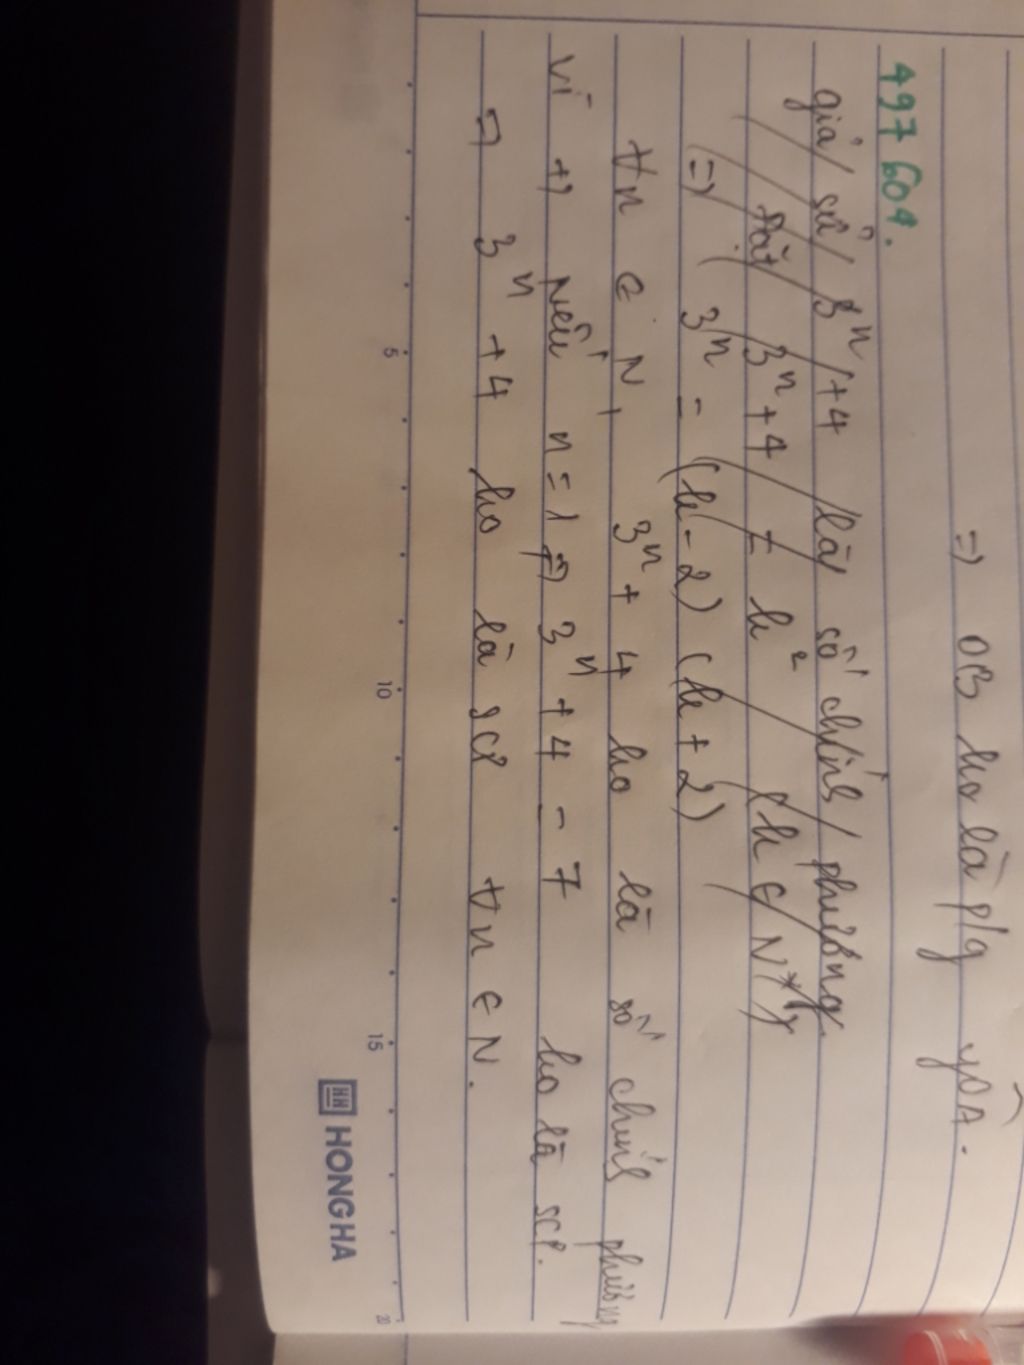 =) OB ko là p/g yOA.
497604.
giả sử 3ⁿ+4 là số chính phương
Đặt 3ⁿ+4 = k² (k ∈ N*)
=) 3ⁿ = (k-2)(k+2)
∀n ∈ N, 3ⁿ+4 ko là số chính phương
vì +) Nếu n=1 =) 3ⁿ+4 = 7 ko là SCP.
=) 3ⁿ+4 ko là SCP ∀n ∈ N.
5 10 15 20
HH HONG HA